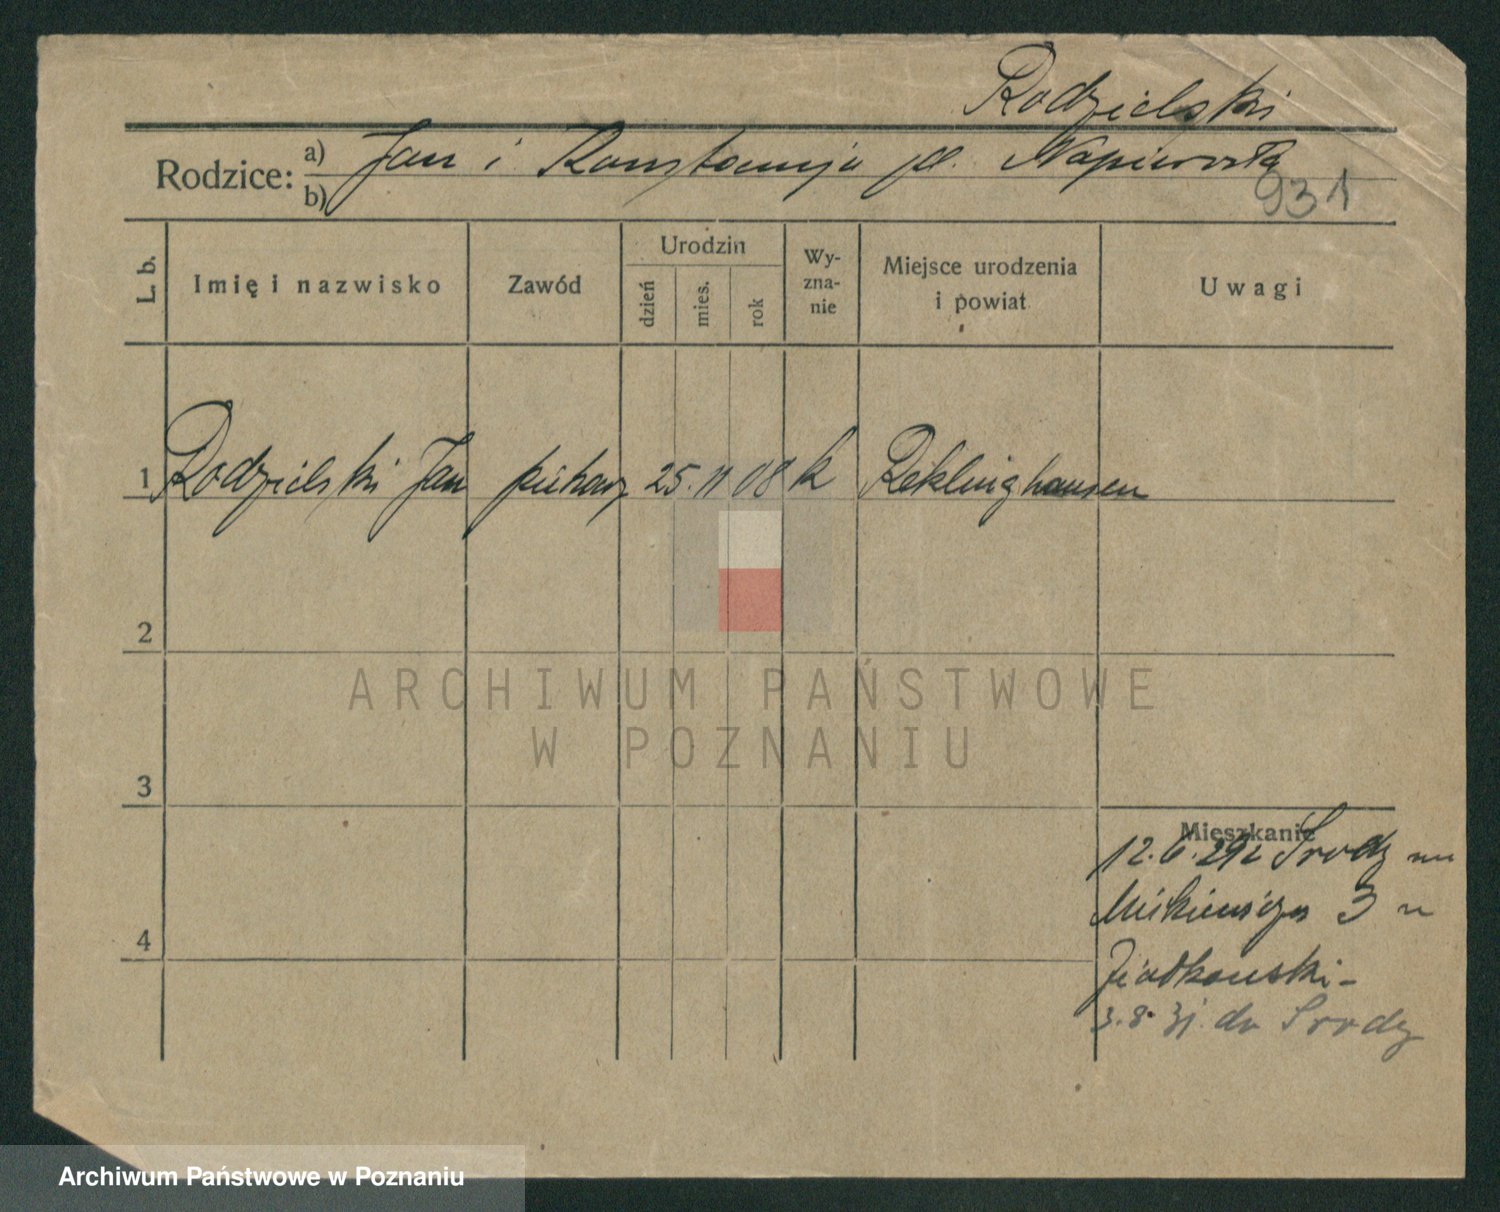 Rodzielski
Rodzice: a) Jan i Konstancyja d. Napierała
b)
931
L. b. Imię i nazwisko Zawód Urodzin dzień mies. rok Wyznanie Miejsce urodzenia i powiat Uwagi
1 Rodzielski Jan piekarz 25. 11 08 k Reklinghausen
2
3
4
Mieszkanie
12. 6. 29 z Srody
3
3. 8. 31. do Srody
ARCHIWUM PAŃSTWOWE
W POZNANIU
Archiwum Państwowe w Poznaniu